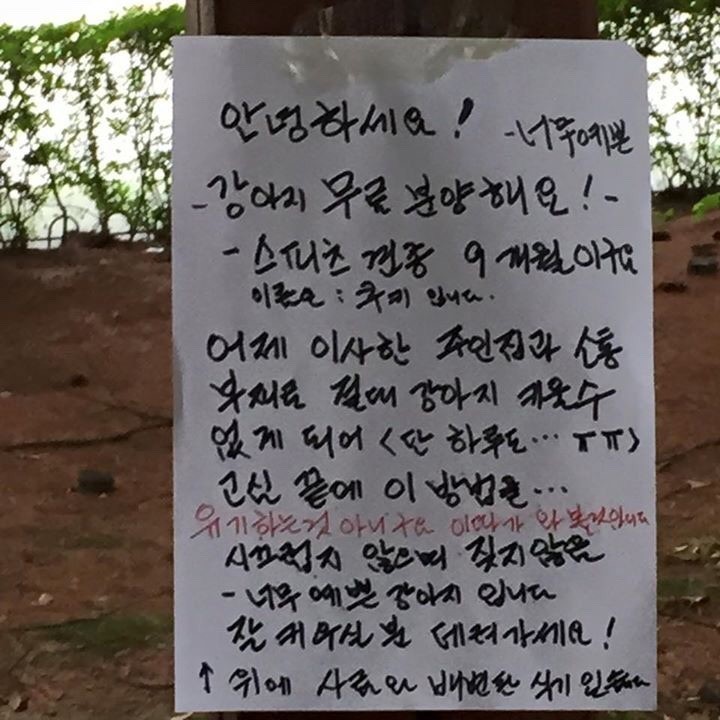 안녕하세요!
-너무예쁜
-강아지 무료 분양해요!-
- 스피츠 견종 9개월이구요
이름은 : 쿠키 입니다.
어제 이사한 주인집과 소통
부재로 절대 강아지 키울수
없게 되어 <단 하루도... ㅠㅠ>
고심 끝에 이 방법을...
유기하는것 아니구요 이따가 와 볼것입니다
시끄럽지 않으며 짖지않음
- 너무 예쁜 강아지 입니다
잘 키우실 분 데려가세요!
↑ 위에 사료와 배변판 식기 있습니다